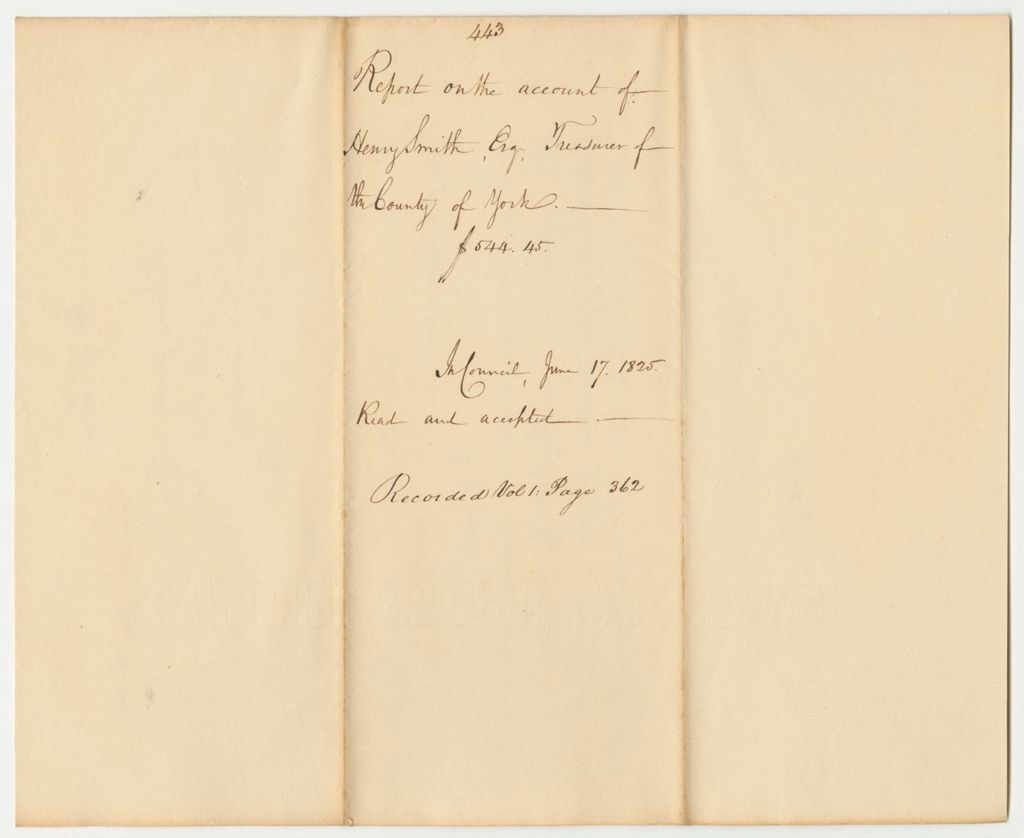 443
Report on the account of
Henry Smith, Esq. Treasurer of
the County of York. —
$544.45.
In Council, June 17. 1825.
Read and accepted —
Recorded Vol 1: Page 362